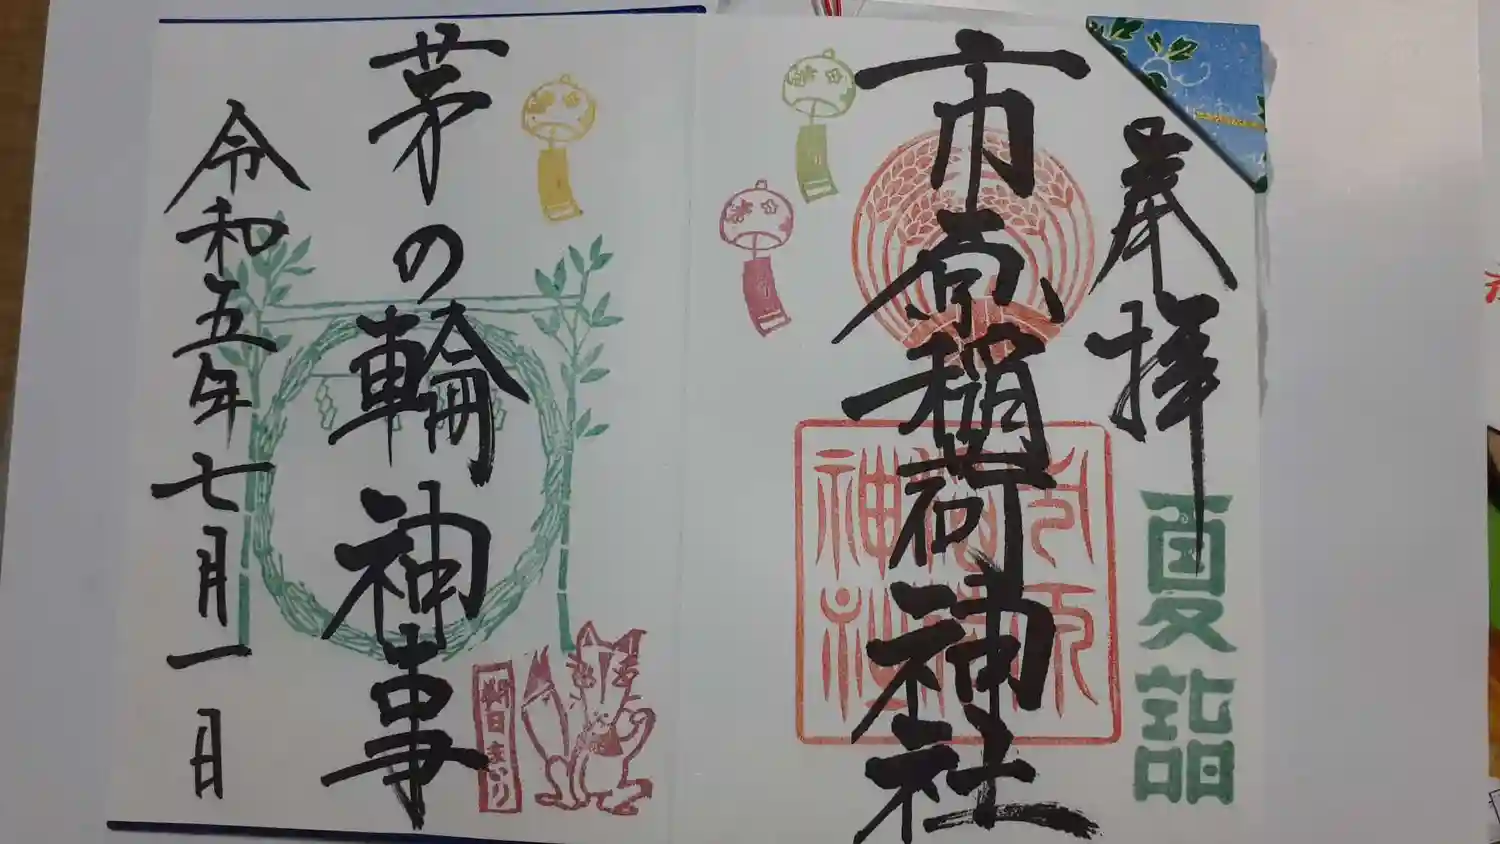 奉拝
夏詣
市原稲荷神社
茅の輪神事
朔日まいり
令和五年七月一日